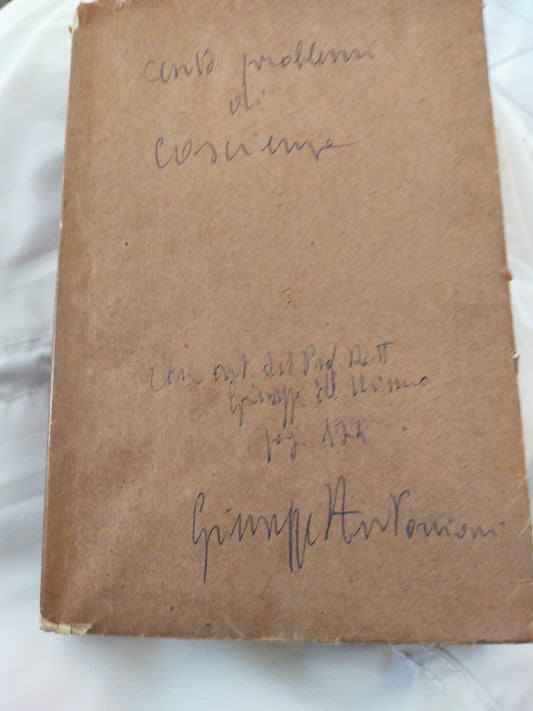 cento problemi
di
coscienza
con art. del Prof. Dott
Giuseppe
pag. 124
Giuseppe Antonioni